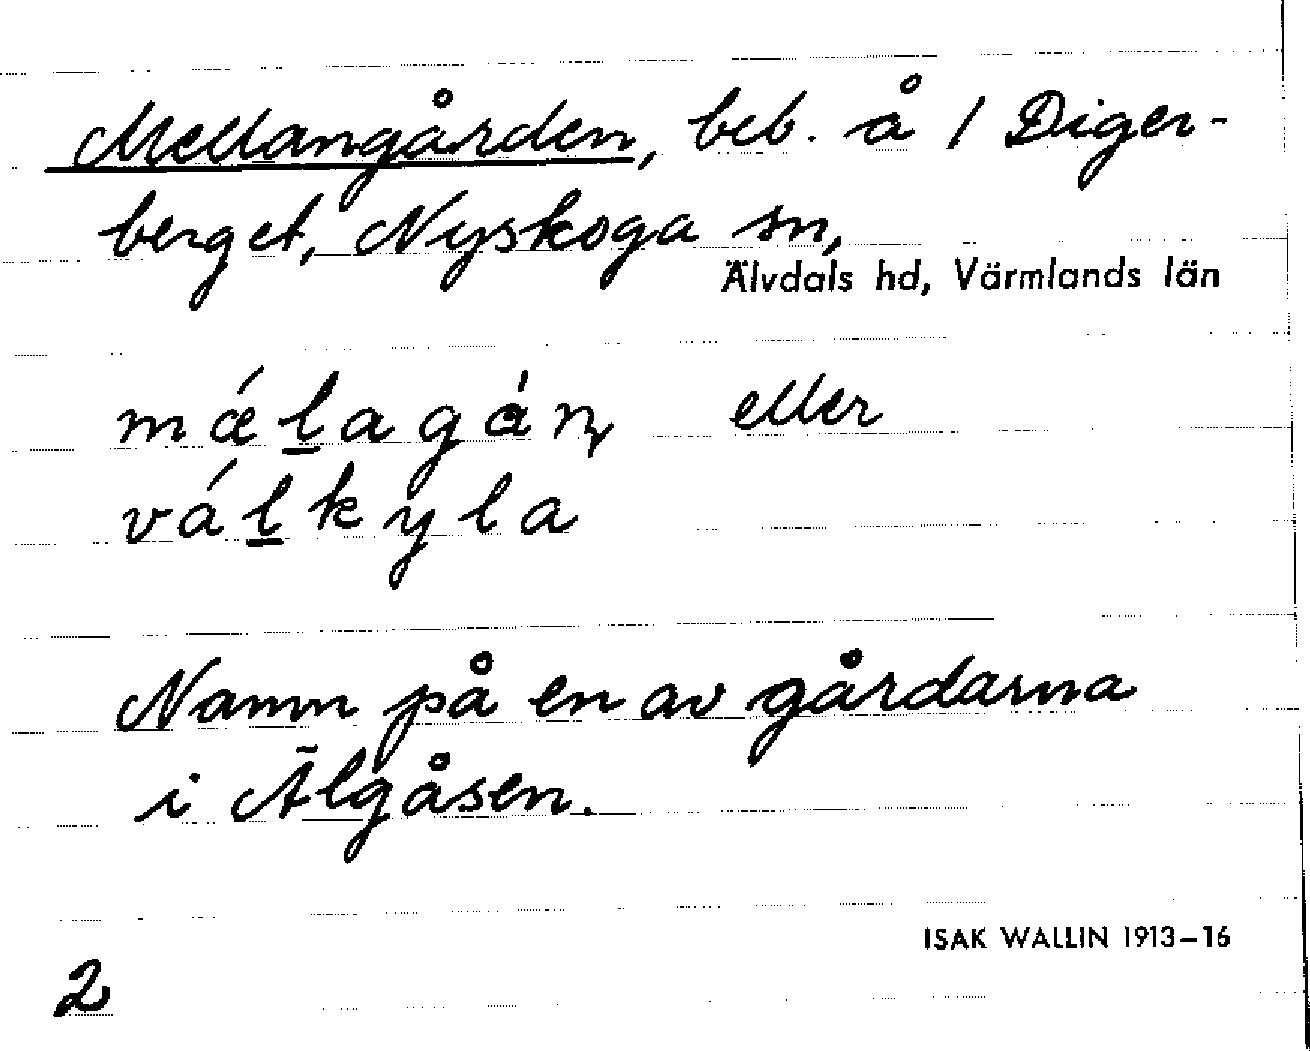 Mellangården, beb. å 1 Diger-
berget, Nyskoga sn,
Älvdals hd, Värmlands län
mǽl̲agán̨ eller
vál̲kyla
Namn på en av gårdarna
i Älgåsen.
ISAK WALLIN 1913–16
2